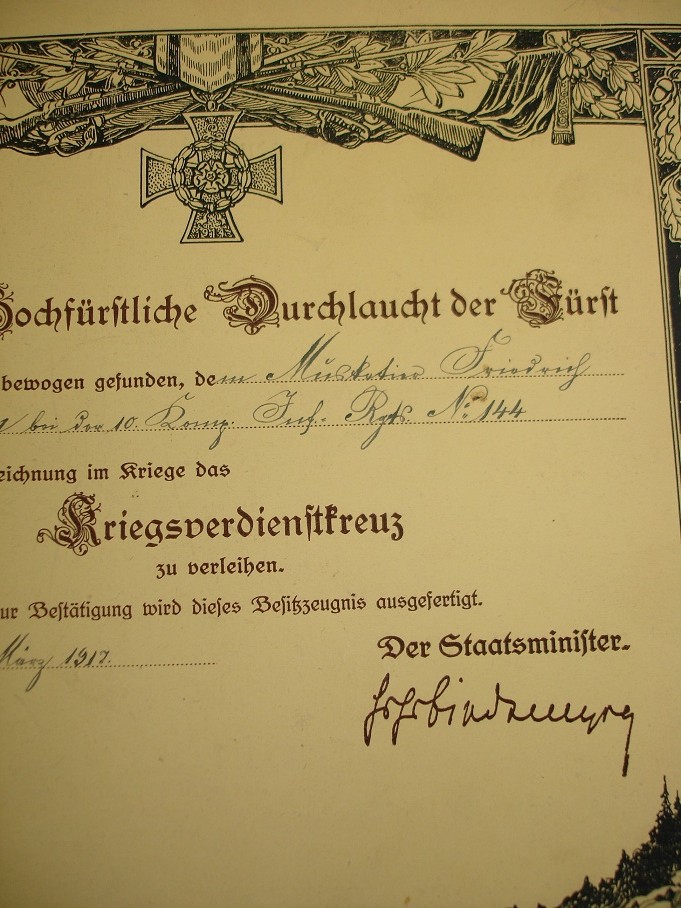 Hochfürstliche Durchlaucht der Fürst
bewogen gefunden, dem Musketier Friedrich
bei der 10. Komp. Inf. Rgts. No. 144
eichnung im Kriege das
Kriegsverdienstkreuz
zu verleihen.
ur Bestätigung wird dieses Besitzzeugnis ausgefertigt.
März 1917.
Der Staatsminister.